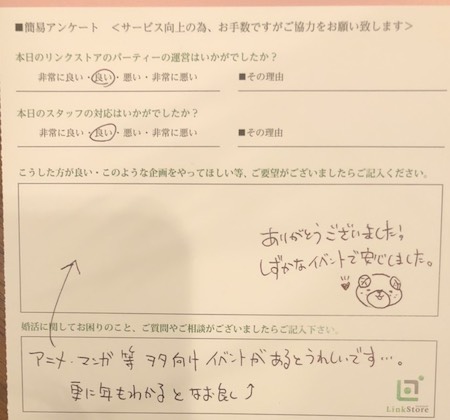 ■簡易アンケート <サービス向上の為、お手数ですがご協力をお願い致します>
本日のリンクストアのパーティーの運営はいかがでしたか?
非常に良い・良い・悪い・非常に悪い ■その理由
本日のスタッフの対応はいかがでしたか?
非常に良い・良い・悪い・非常に悪い ■その理由
こうした方が良い・このような企画をやってほしい等、ご要望がございましたらご記入ください。
ありがとうございました!!
しずかなイベントで安じしました。
婚活に関してお困りのこと、ご質問やご相談がございましたらご記入下さい。
アニメ・マンガ 等 ヲタ向け イベントがあるとうれしいです…。
更に年もわかると なお良し
LinkStore